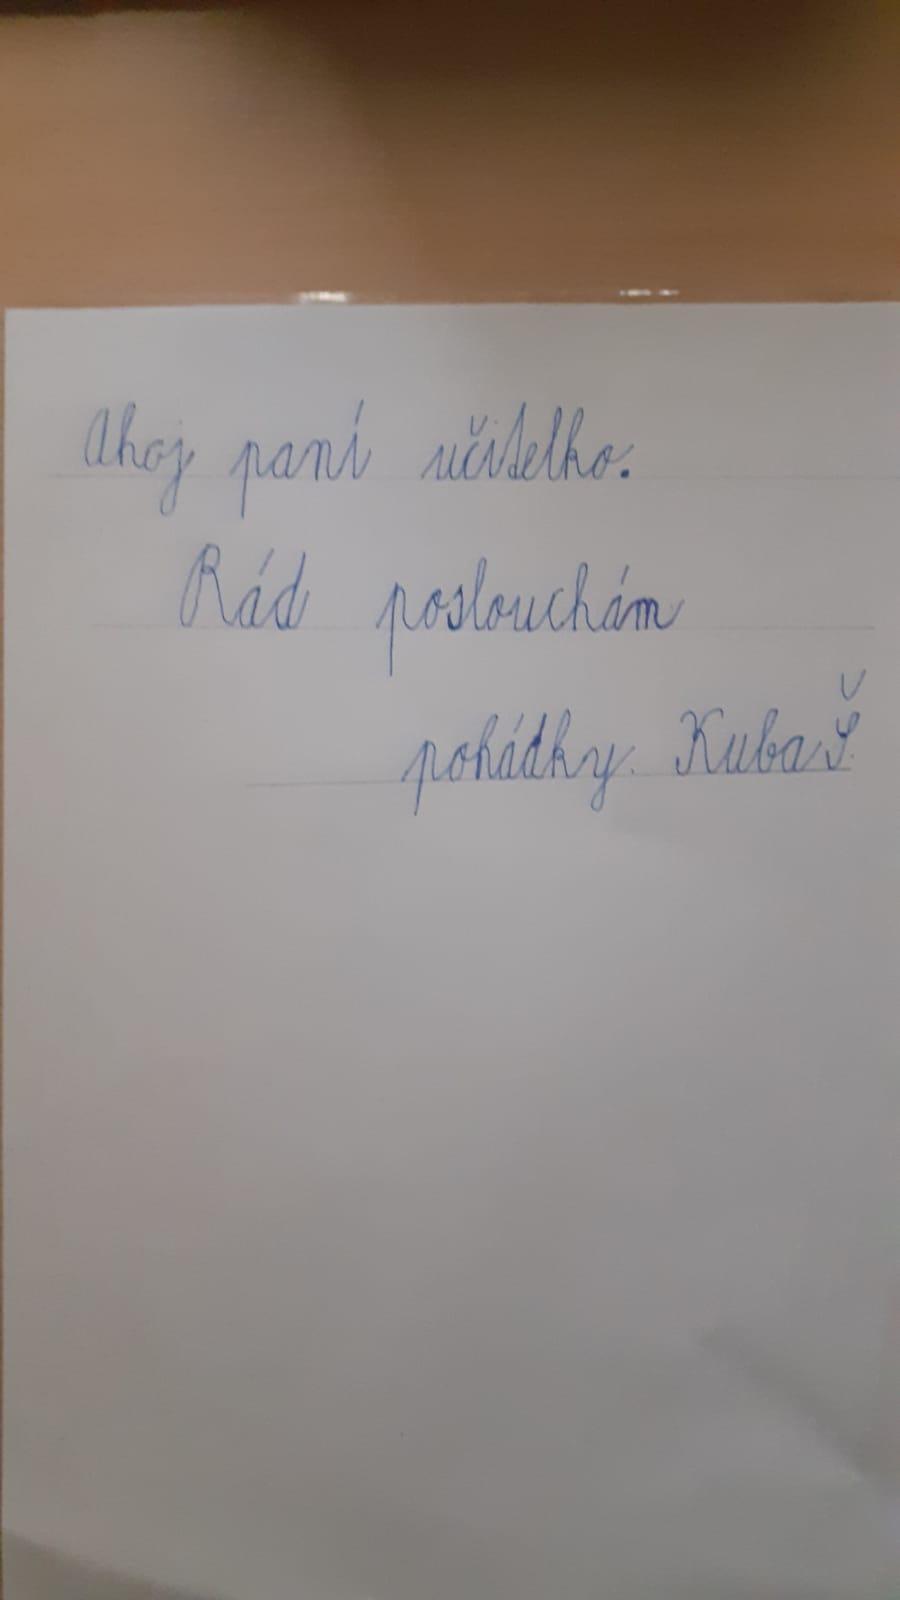 Ahoj paní učitelko.
Rád poslouchám
pohádky. Kuba Š.